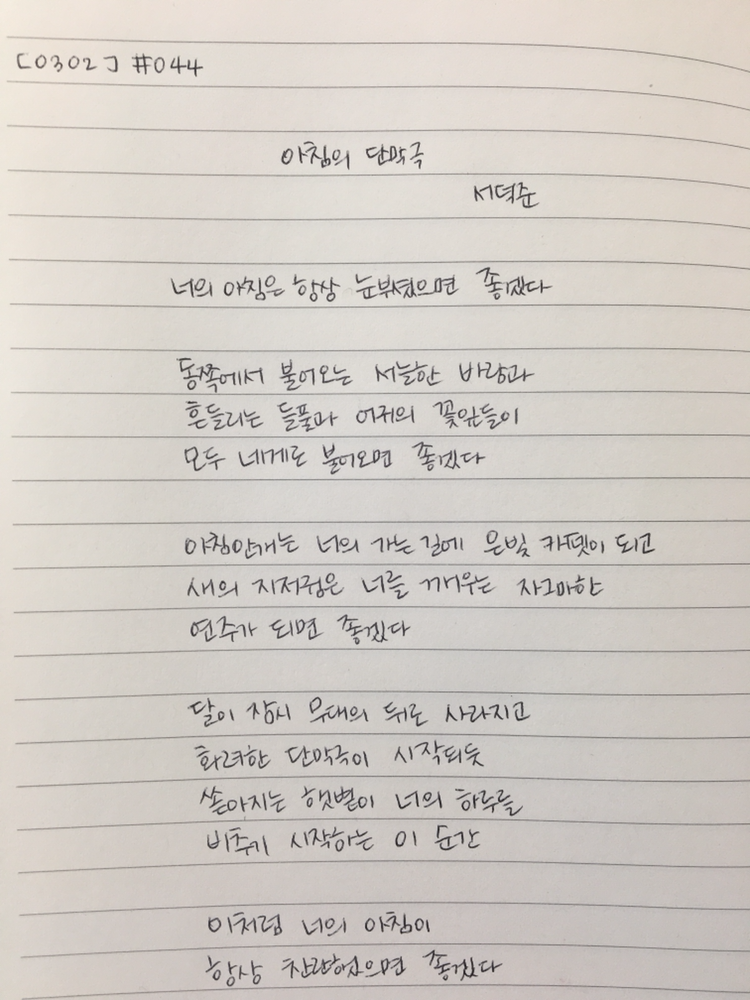 [0302] #044
아침의 단막극
서덕준
너의 아침은 항상 눈부셨으면 좋겠다
동쪽에서 불어오는 서늘한 바람과
흔들리는 들풀과 어귀의 꽃잎들이
모두 네게로 불어오면 좋겠다
아침안개는 너의 가는 길에 은빛 카펫이 되고
새의 지저귐은 너를 깨우는 자그마한
연주가 되면 좋겠다
달이 잠시 무대의 뒤로 사라지고
화려한 단막극이 시작되듯
쏟아지는 햇볕이 너의 하루를
비추기 시작하는 이 순간
이처럼 너의 아침이
항상 찬란했으면 좋겠다